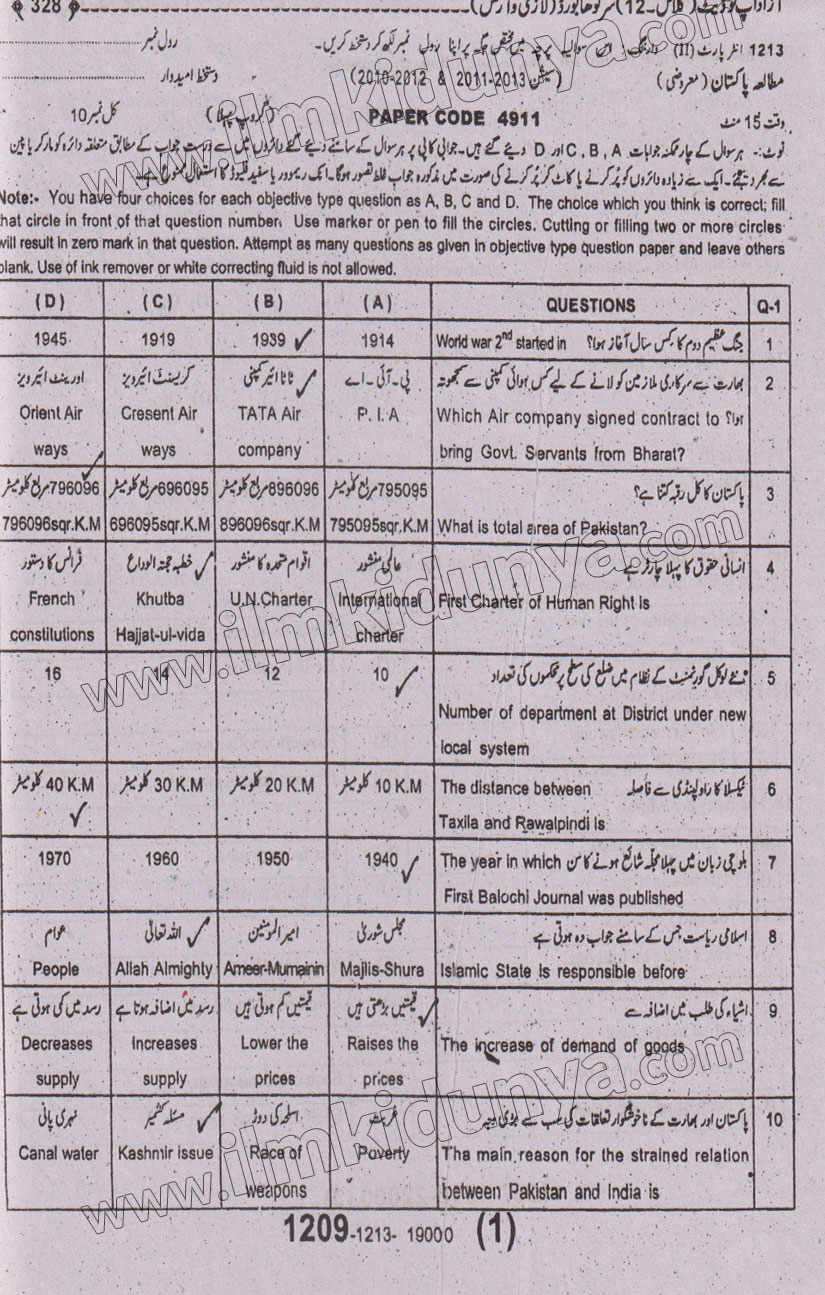 ﴾ 328 ﴿ آزاد اپ ٹو ڈیٹ (کلاس۔12) سرگودھا بورڈ (لازمی و آرٹس)
1213 انٹر پارٹ (II) وارننگ: اس سوالیہ پرچہ میں مختص جگہ پر اپنا رول نمبر لکھ کر دستخط کریں۔ رول نمبر
مطالعہ پاکستان (معروضی) (سیشن 2012-2010 & 2013-2011) دستخط امیدوار
وقت 15 منٹ PAPER CODE 4911 (گروپ پہلا) کل نمبر 10
نوٹ:۔ ہر سوال کے چار ممکنہ جوابات C , B , A اور D دیئے گئے ہیں۔ جوابی کاپی پر ہر سوال کے سامنے دیئے گئے دائروں میں سے درست جواب کے مطابق متعلقہ دائرہ کو مارکر یا پین
سے بھر دیجئے۔ ایک سے زیادہ دائروں کو پُر کرنے یا کاٹ کر پُر کرنے کی صورت میں مذکورہ جواب غلط تصور ہوگا۔ انک ریموور یا سفید فلیوڈ کا استعمال ممنوع ہے۔
Note:- You have four choices for each objective type question as A, B, C and D. The choice which you think is correct; fill
that circle in front of that question number. Use marker or pen to fill the circles. Cutting or filling two or more circles
will result in zero mark in that question. Attempt as many questions as given in objective type question paper and leave others
blank. Use of ink remover or white correcting fluid is not allowed.
(D) (C) (B) (A) QUESTIONS Q-1
1945 1919 1939 1914 World war 2nd started in جنگ عظیم دوم کا کس سال آغاز ہوا؟ 1
اورینٹ ائیرویز کریسنٹ ائیرویز ٹاٹا ائیر کمپنی پی۔آئی۔اے بھارت سے سرکاری ملازمین کو لانے کے لیے کس ہوائی کمپنی سے سمجھوتہ 2
Orient Air Cresent Air TATA Air P. I. A Which Air company signed contract to ہوا؟
ways ways company bring Govt. Servants from Bharat?
796096مربع کلومیٹر 696095مربع کلومیٹر 896096مربع کلومیٹر 795095مربع کلومیٹر پاکستان کا کل رقبہ کتنا ہے؟ 3
796096sqr.K.M 696095sqr.K.M 896096sqr.K.M 795095sqr.K.M What is total area of Pakistan?
فرانس کا دستور خطبہ حجتہ الوداع اقوام متحدہ کا منشور عالمی منشور انسانی حقوق کا پہلا چارٹر ہے 4
French Khutba U.N.Charter International First Charter of Human Right is
constitutions Hajjat-ul-vida charter
16 14 12 10 نئے لوکل گورنمنٹ کے نظام میں ضلع کی سطح پر محکموں کی تعداد 5
Number of department at District under new
local system
40 K.M کلومیٹر 30 K.M کلومیٹر 20 K.M کلومیٹر 10 K.M کلومیٹر The distance between ٹیکسلا کا راولپنڈی سے فاصلہ 6
Taxila and Rawalpindi is
1970 1960 1950 1940 The year in which بلوچی زبان میں پہلا مجلّہ شائع ہونے کا سن 7
First Balochi Journal was published
عوام اللہ تعالیٰ امیر المومنین مجلس شوریٰ اسلامی ریاست جس کے سامنے جواب دہ ہوتی ہے 8
People Allah Almighty Ameer-Mumainin Majlis-Shura Islamic State is responsible before
رسد میں کمی ہوتی ہے رسد میں اضافہ ہوتا ہے قیمتیں کم ہوتی ہیں قیمتیں بڑھتی ہیں اشیاء کی طلب میں اضافہ سے 9
Decreases Increases Lower the Raises the The increase of demand of goods
supply supply prices prices
نہری پانی مسئلہ کشمیر اسلحہ کی دوڑ غربت پاکستان اور بھارت کے ناخوشگوار تعلقات کی سب سے بڑی وجہ 10
Canal water Kashmir issue Race of Poverty Tha main reason for the strained relation
weapons between Pakistan and India is
1209-1213- 19000 (1)
www.ilmkidunya.com
www.ilmkidunya.com
www.ilmkidunya.com